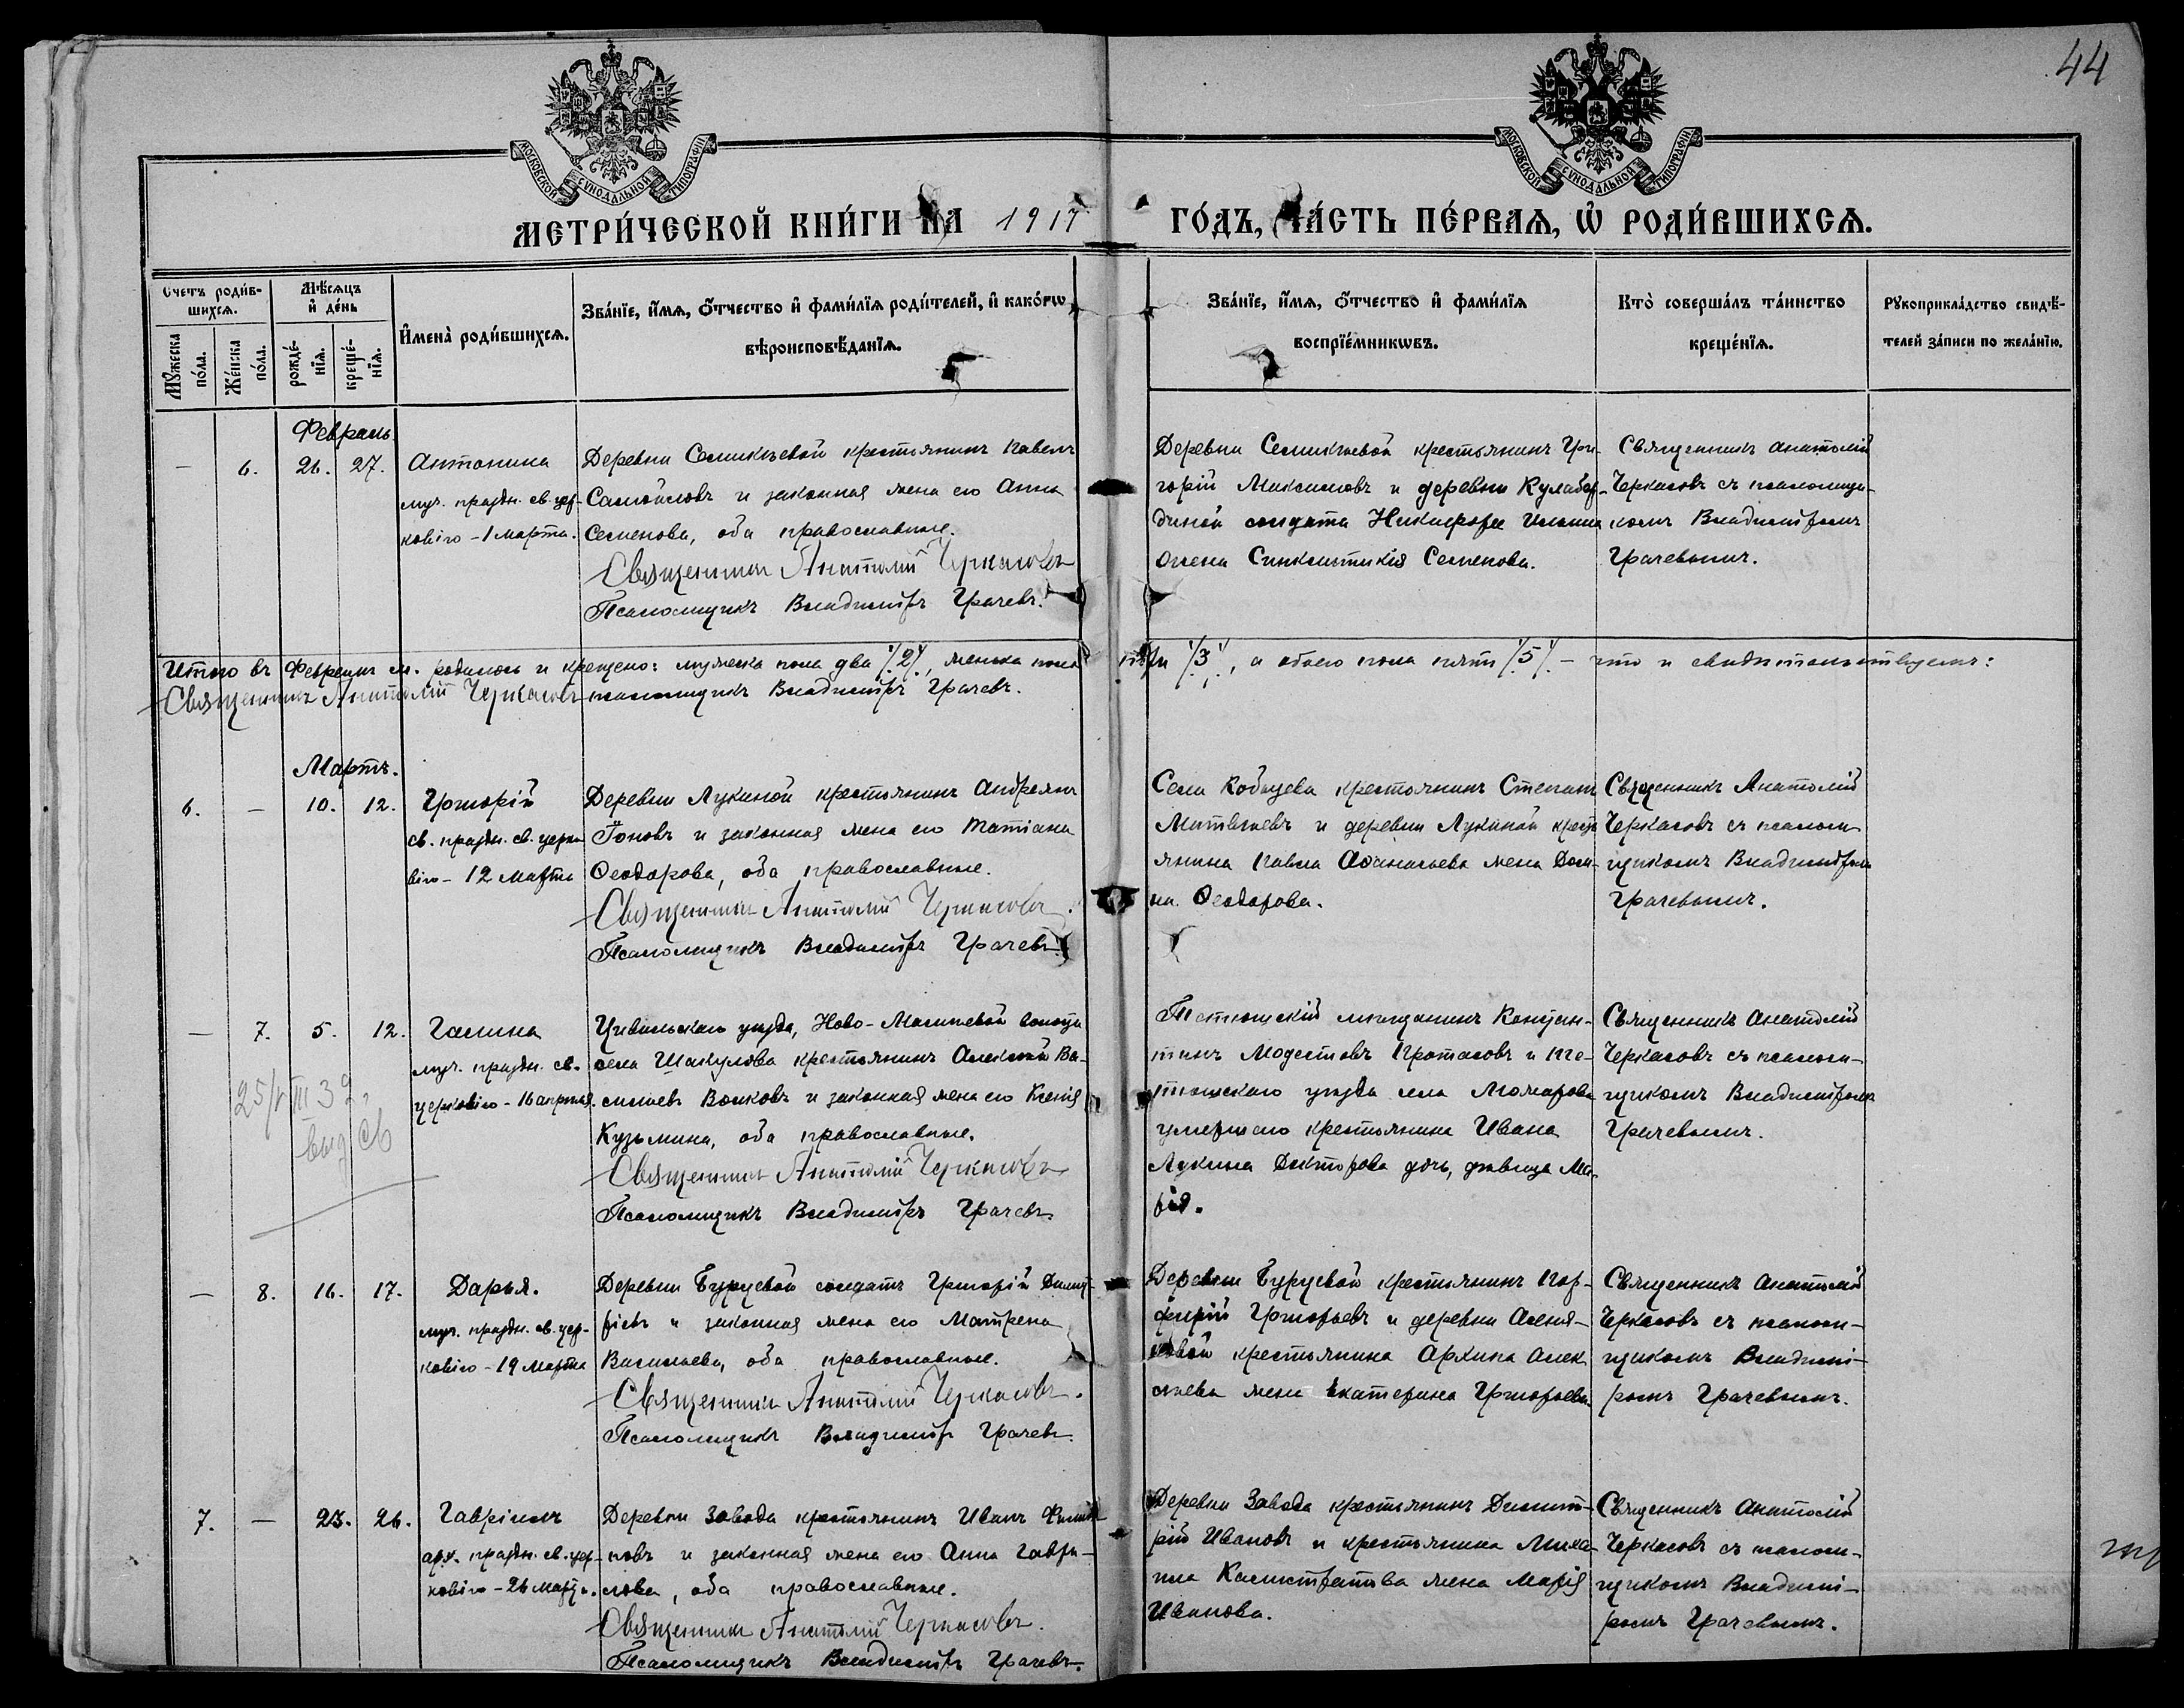 44
МОСКОВСКОЙ СѴНОДАЛЬНОЙ ТИПОГРАФІИ
МОСКОВСКОЙ СѴНОДАЛЬНОЙ ТИПОГРАФІИ
МЕТРИ́ЧЕСКОЙ КНИ́ГИ НА 1917 ГО́ДЪ, ЧА́СТЬ ПЕ́РВАЯ, Ѡ҆ РОДИ́ВШИХСЯ.
Счетъ роди́вшихся.
Му́жеска по́ла.
Же́нска по́ла.
Мѣ́сяцъ и҆ де́нь
рожде́нїя.
креще́нїя.
И҆мена̀ роди́вшихся.
Зва́нїе, и҆́мя, ѻ҆́тчество и҆ фами́лїя роди́телей, и҆ како́гѡ
вѣроисповѣ́данїя.
Зва́нїе, и҆́мя, ѻ҆́тчество и҆ фами́лїя
воспрїе́мникѡвъ.
Кто̀ соверша́лъ та́инство
креще́нїя.
Рꙋкоприкла́дство свидѣ́-
телей за́писи по жела́нїю.
Февраль.
— 6. 26. 27.
Антонина
муч. праздн. св. цер-
ковію - 1 марта.
Деревни Семикѣевой крестьянинъ Павелъ
Самойловъ и законная жена его Анна
Семенова, оба православные.
Священникъ Анатолій Черкасовъ
Псаломщикъ Владиміръ Грачевъ.
Деревни Семикѣевой крестьянинъ Гри-
горій Максимовъ и деревни
солдата Никифора Ильина
жена Синклитикія Семенова.
Священникъ Анатолій
Черкасовъ съ псаломщи-
комъ Владиміромъ
Грачевымъ.
Итого въ Февралѣ м. родилось и крещено: мужеска пола два /2/, женска пола три /3/, а обоего пола пять /5/ - что и свидѣтельствуемъ:
Священникъ Анатолій Черкасовъ псаломщикъ Владиміръ Грачевъ.
Мартъ.
6. — 10. 12.
Григорій
св. праздн. св. церко
вію - 12 марта
Деревни Лукиной крестьянинъ Андреянъ
и законная жена его Татіана
Ѳеодорова, оба православные.
Священникъ Анатолій Черкасовъ.
Псаломщикъ Владиміръ Грачевъ.
Села крестьянинъ Степанъ
Матвѣевъ и деревни Лукиной кресть
янина Павла Аѳанасьева жена Дом-
на Ѳеодорова.
Священникъ Анатолій
Черкасовъ съ псалом-
щикомъ Владиміромъ
Грачевымъ.
— 7. 5. 12.
Галина
муч. праздн. св.
церковію - 16 апрѣля.
25/ III 39
выд св
Цивильскаго уѣзда, Ново- волости
села Шакулова крестьянинъ Алексѣй Ва-
сильевъ Волковъ и законная жена его Ксенія
Кузьмина, оба православные.
Священникъ Анатолій Черкасовъ
Псаломщикъ Владиміръ Грачевъ.
Тетюшскій мѣщанинъ Констан-
тинъ Модестовъ Протасовъ и Те-
тюшскаго уѣзда села
умершаго крестьянина Ивана
Лукина дочь, дѣвица Ма-
рія.
Священникъ Анатолій
Черкасовъ съ псалом-
щикомъ Владиміромъ
Грачевымъ.
— 8. 16. 17.
Дарья.
муч. праздн. св. цер-
ковію - 19 марта
Деревни Бурцевой солдатъ Григорій Димит-
ріевъ и законная жена его Матрена
Васильева, оба православные.
Священникъ Анатолій Черкасовъ.
Псаломщикъ Владиміръ Грачевъ.
Деревни Бурцевой крестьянинъ Пор-
фирій Григорьевъ и деревни
крестьянина Архипа Алек
сѣева жена Екатерина Григорьева.
Священникъ Анатолій
Черкасовъ съ псалом-
щикомъ Владимі-
ромъ Грачевымъ.
7. — 23. 26.
Гавріилъ
арх. праздн. св. цер-
ковію - 26 марта.
Деревни Завода крестьянинъ Иванъ Филип
повъ и законная жена его Анна Гаври-
лова, оба православные.
Священникъ Анатолій Черкасовъ.
Псаломщикъ Владиміръ Грачевъ.
Деревни Завода крестьянинъ Димит-
рій Ивановъ и крестьянина Миха-
ила Калистратова жена Марія
Иванова.
Священникъ Анатолій
Черкасовъ съ псалом-
щикомъ Владимі-
ромъ Грачевымъ.